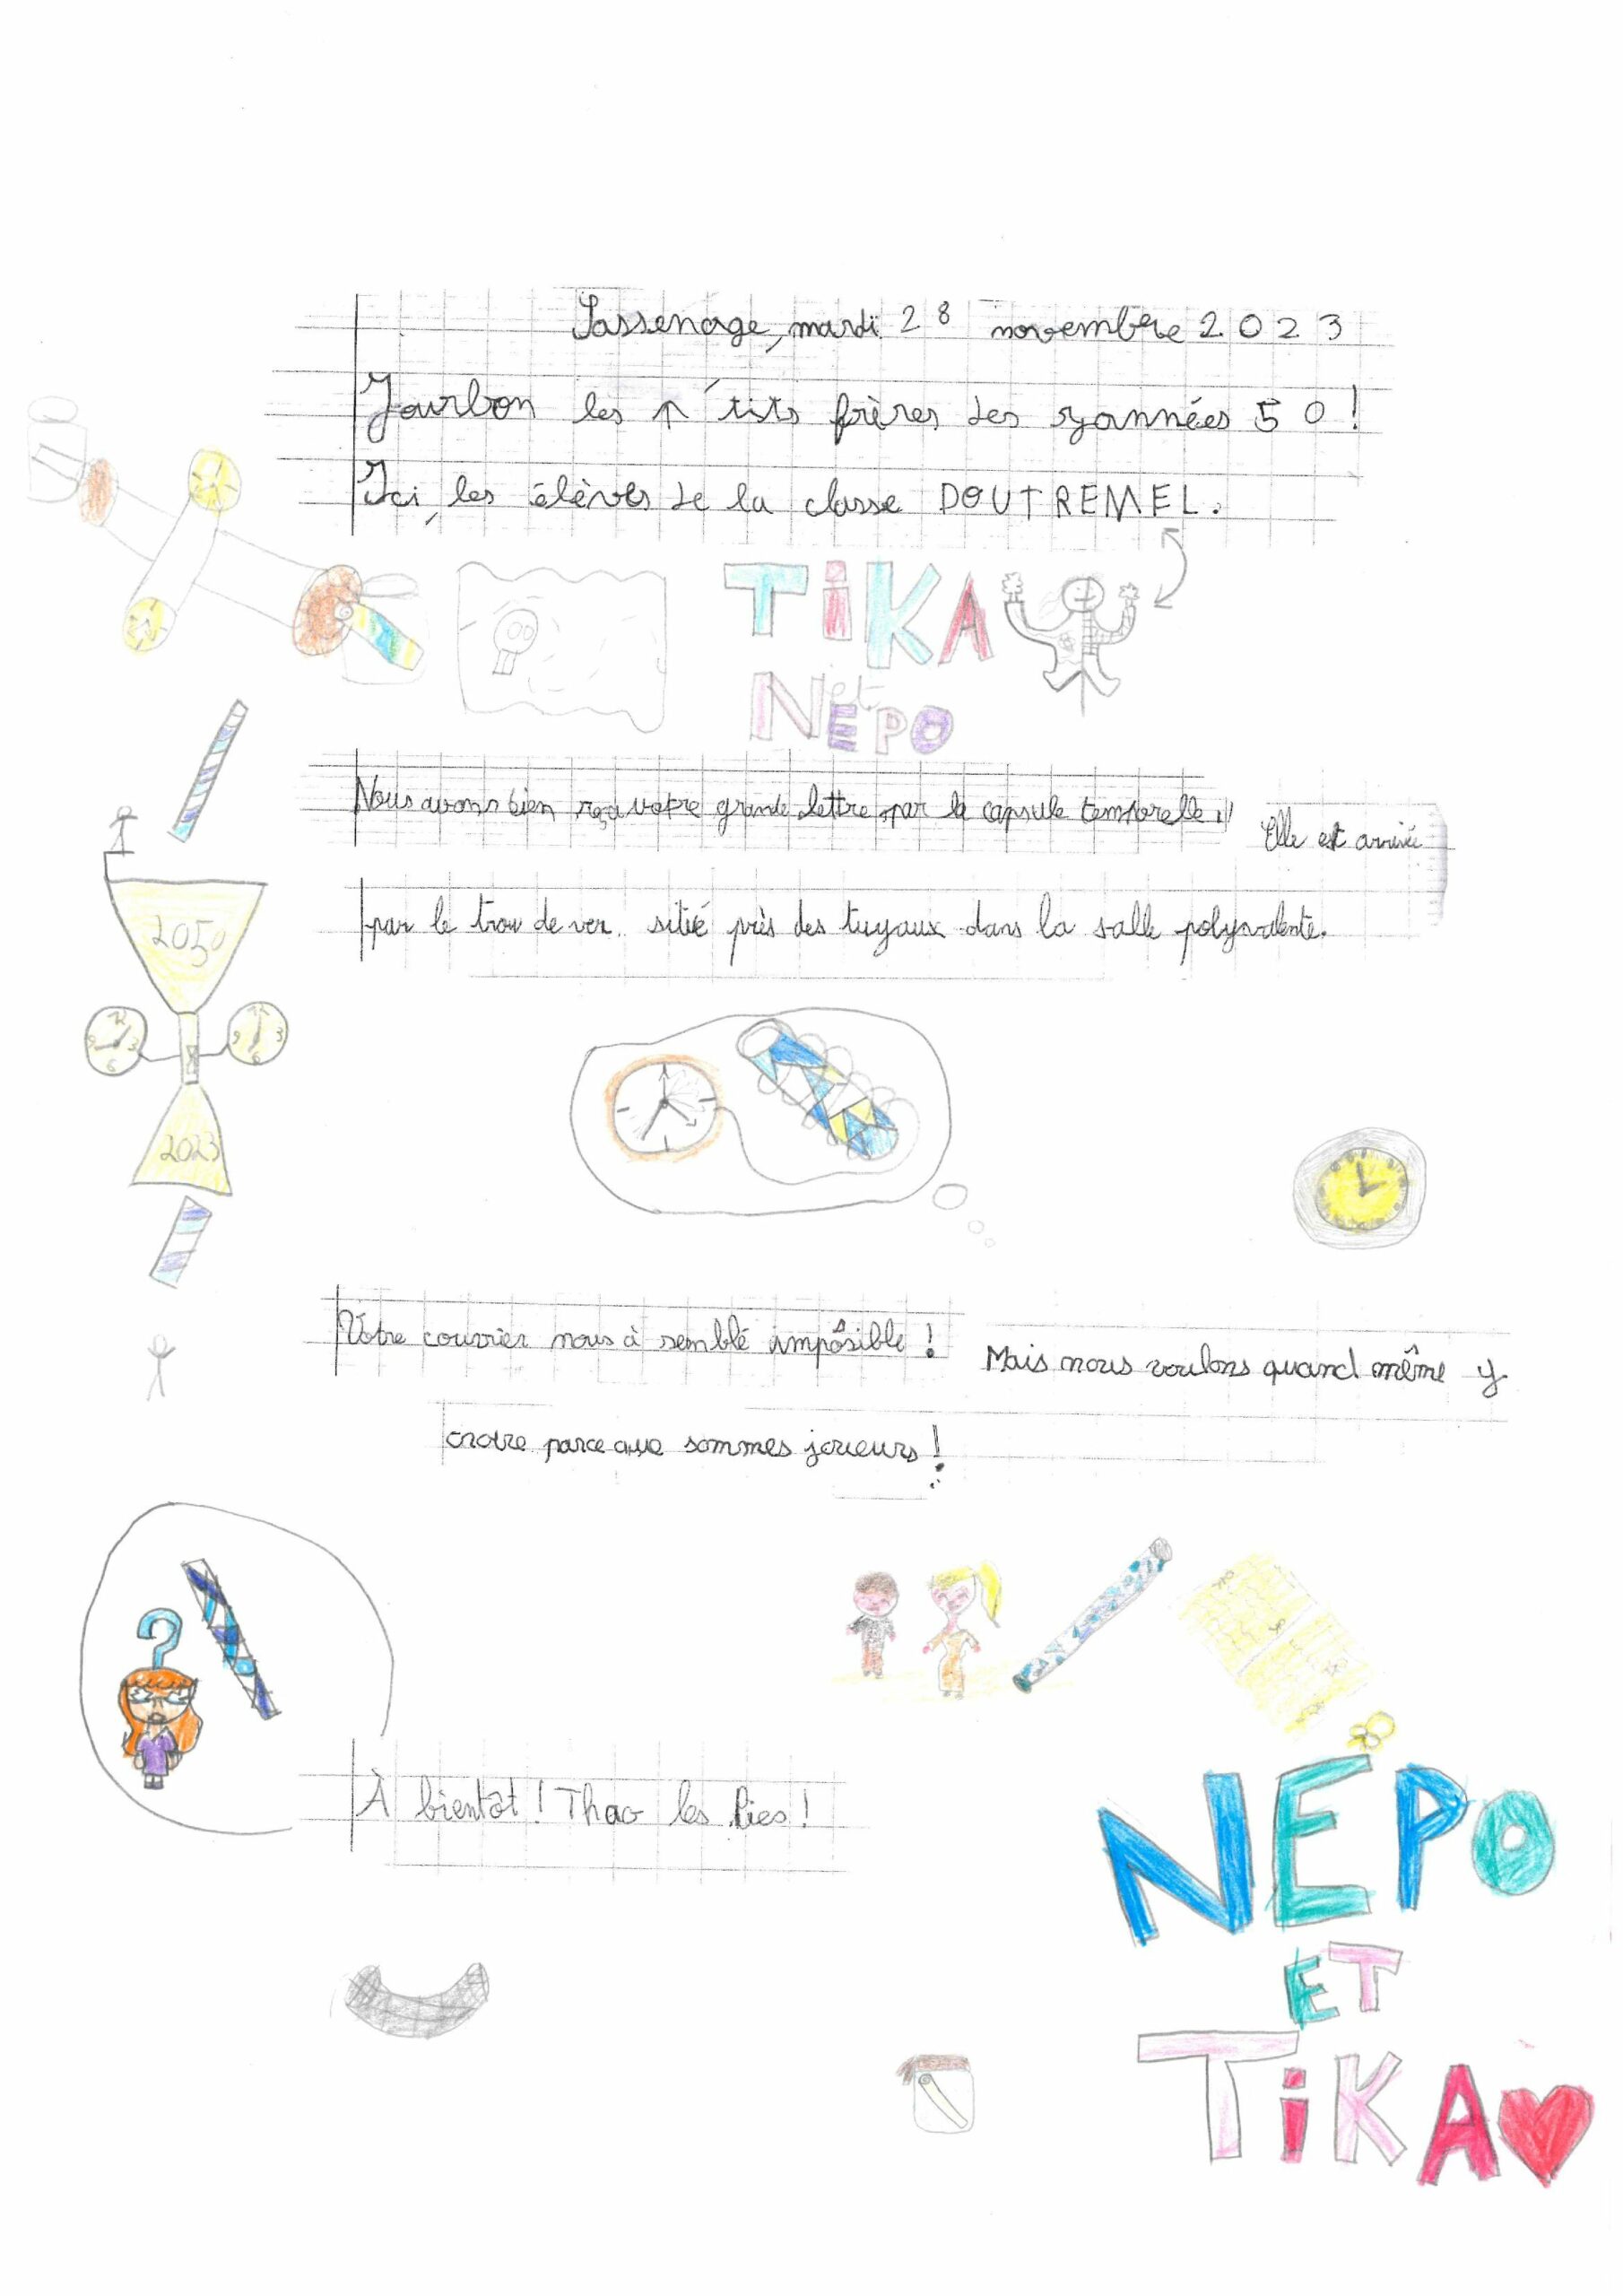 Sassenage, mardi 28 novembre 2023
Jourbon les p'tits frères des zyannées 50!
Ici, les élèves de la classe DOUTREMEL.
TiKA
et
NEPO
Nous avons bien reçu votre grande lettre par la capsule temporelle !!
Elle est arrivée
par le trou de ver situé près des tuyaux dans la salle polyvalente.
2050
12
9 3
6
12
9 3
6
2023
Votre courrier nous à semblé impossible !
Mais nous voulons quand même y
croire parce que sommes joueurs !
?
À bientôt ! Thao les lies !
NÉPO
ET
TiKA